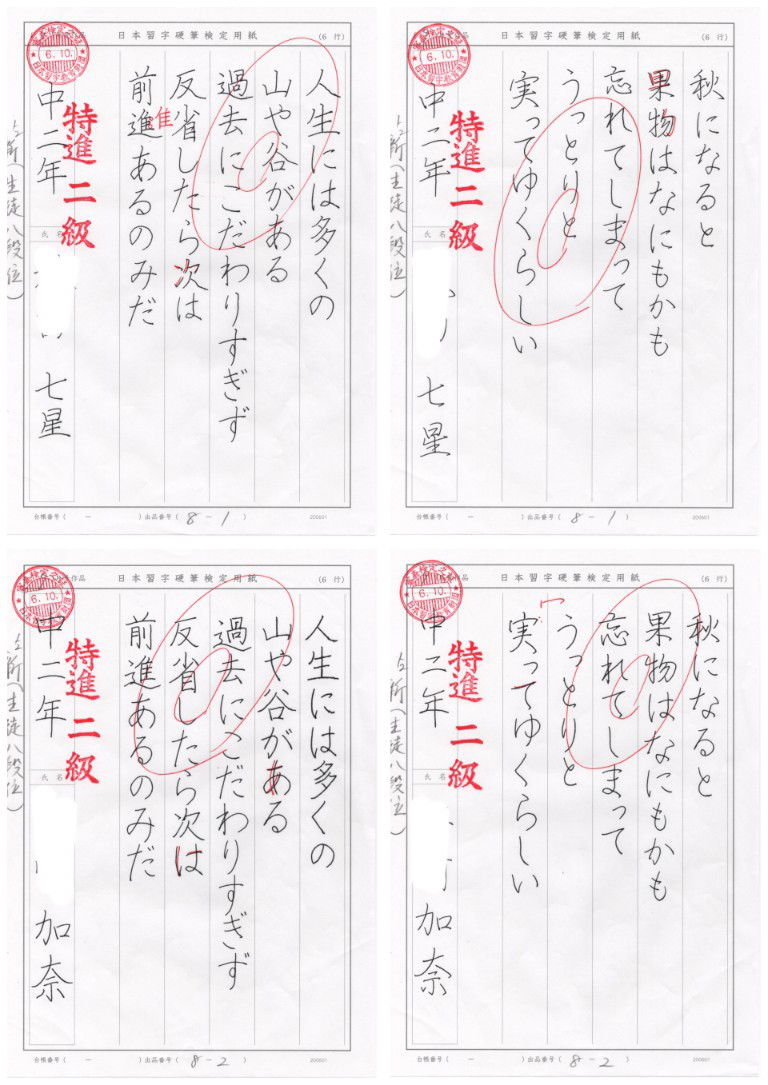 日本習字硬筆検定用紙
(6 行)
人生には多くの
山や谷がある
過去にこだわりすぎず
反省したら次は
前進あるのみだ
隹
特進二級
中二年
氏名
七星
(生徒八段位)
6.10.
台帳番号( - )出品番号( 8 - 1 )
日本習字硬筆検定用紙
(6 行)
秋になると
果物はなにもかも
忘れてしまって
うっとりと
実ってゆくらしい
特進二級
中二年
氏名
七星
(生徒八段位)
6.10.
台帳番号( - )出品番号( 8 - 1 )
作品
日本習字硬筆検定用紙
(6 行)
人生には多くの
山や谷がある
過去にこだわりすぎず
反省したら次は
前進あるのみだ
特進二級
中二年
氏名
加奈
(生徒八段位)
6.10.
台帳番号( - )出品番号( 8 - 2 )
日本習字硬筆検定用紙
(6 行)
秋になると
果物はなにもかも
忘れてしまって
うっとりと
実ってゆくらしい
特進二級
中二年
氏名
加奈
(生徒八段位)
6.10.
台帳番号( - )出品番号( 8 - 2 )